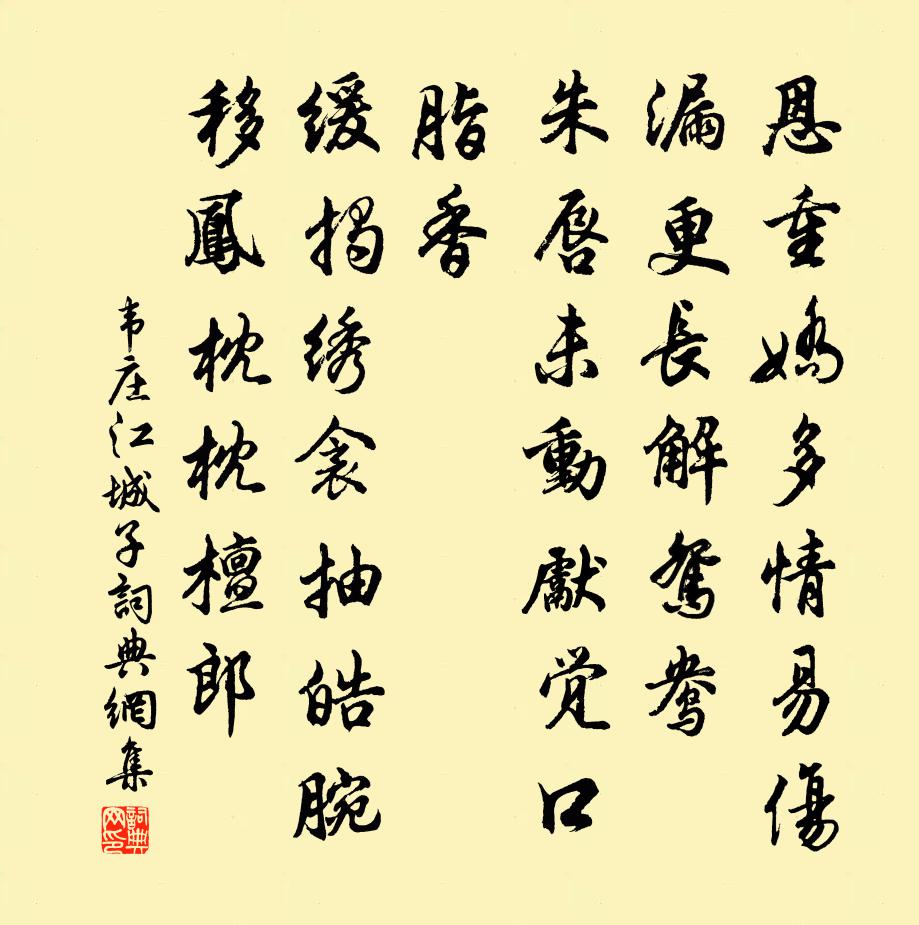 恩重嬌多情易傷
漏更長解鴛鴦
朱唇未動獻覚口
脂香
緩揭綉衾抽皓腕
移鳳枕枕檀郎
韦庄江城子詞典網集
詞典网印